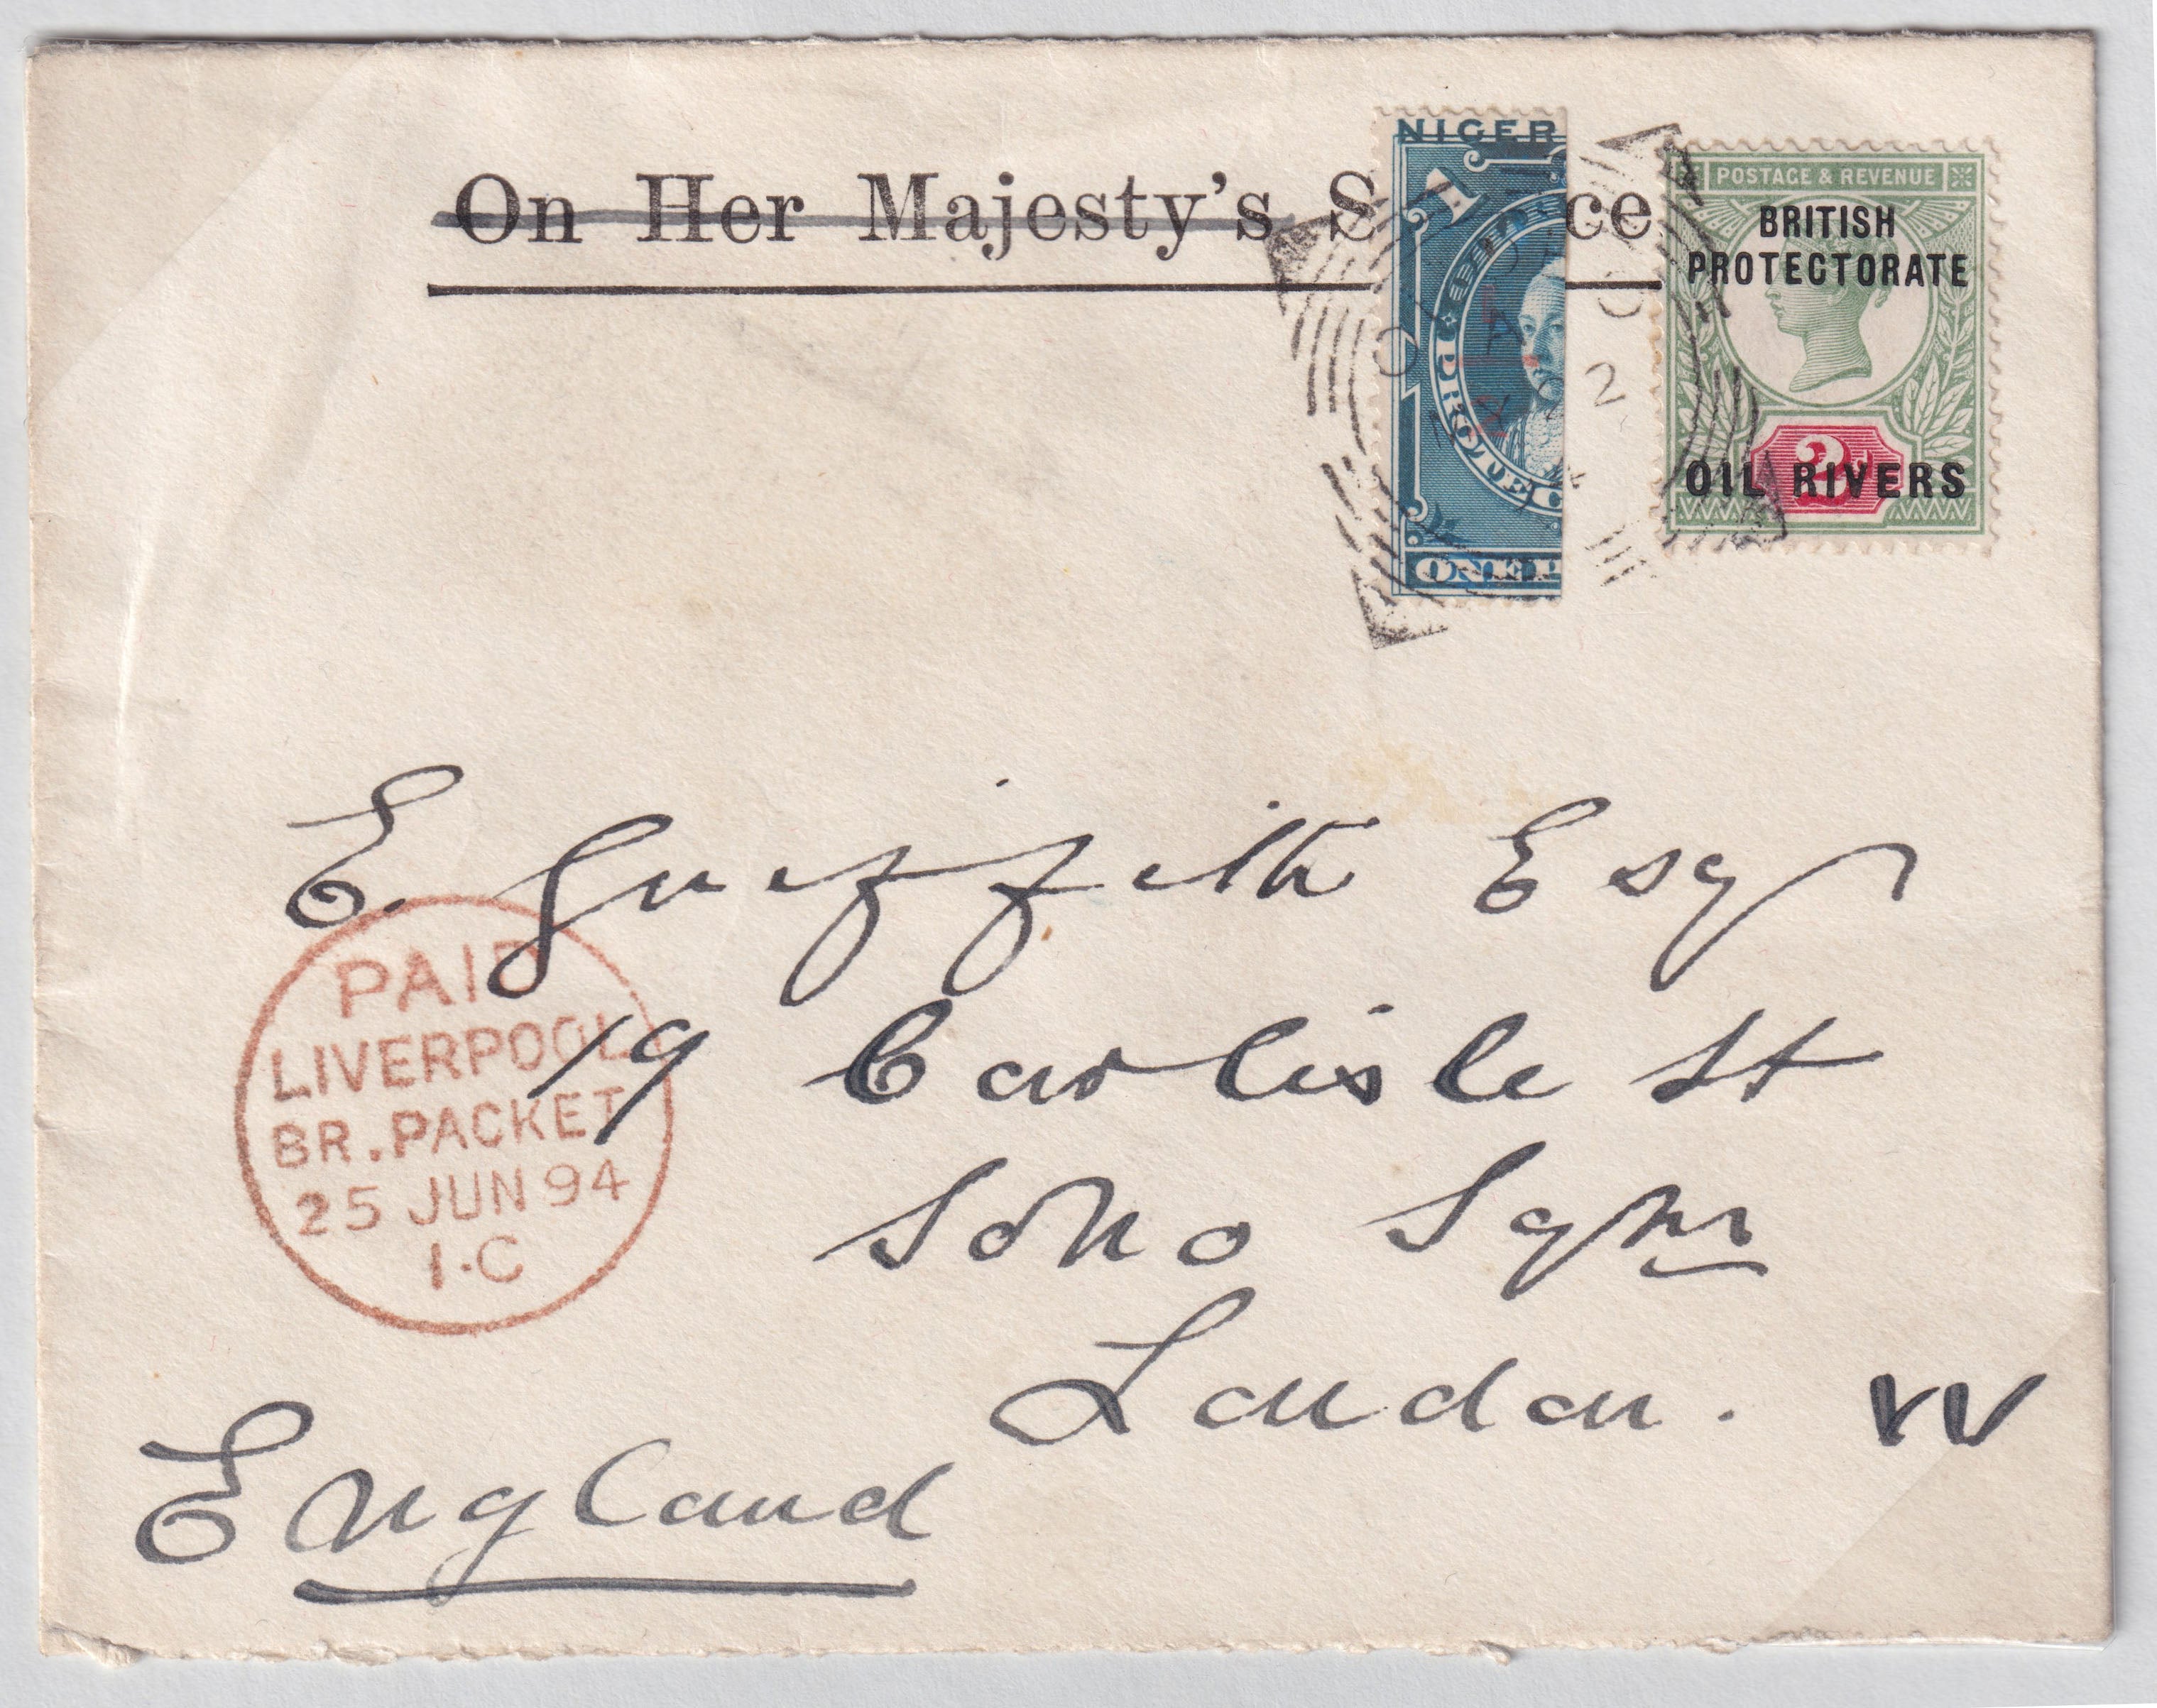 On Her Majesty's S ce
NIGER
1
ONE P
POSTAGE & REVENUE
BRITISH
PROTECTORATE
2d
OIL RIVERS
E. Griffith Esqr
19 Carlisle St
Soho Sqre
London. W
England
PAID
LIVERPOOL
BR. PACKET
25 JUN 94
1·C